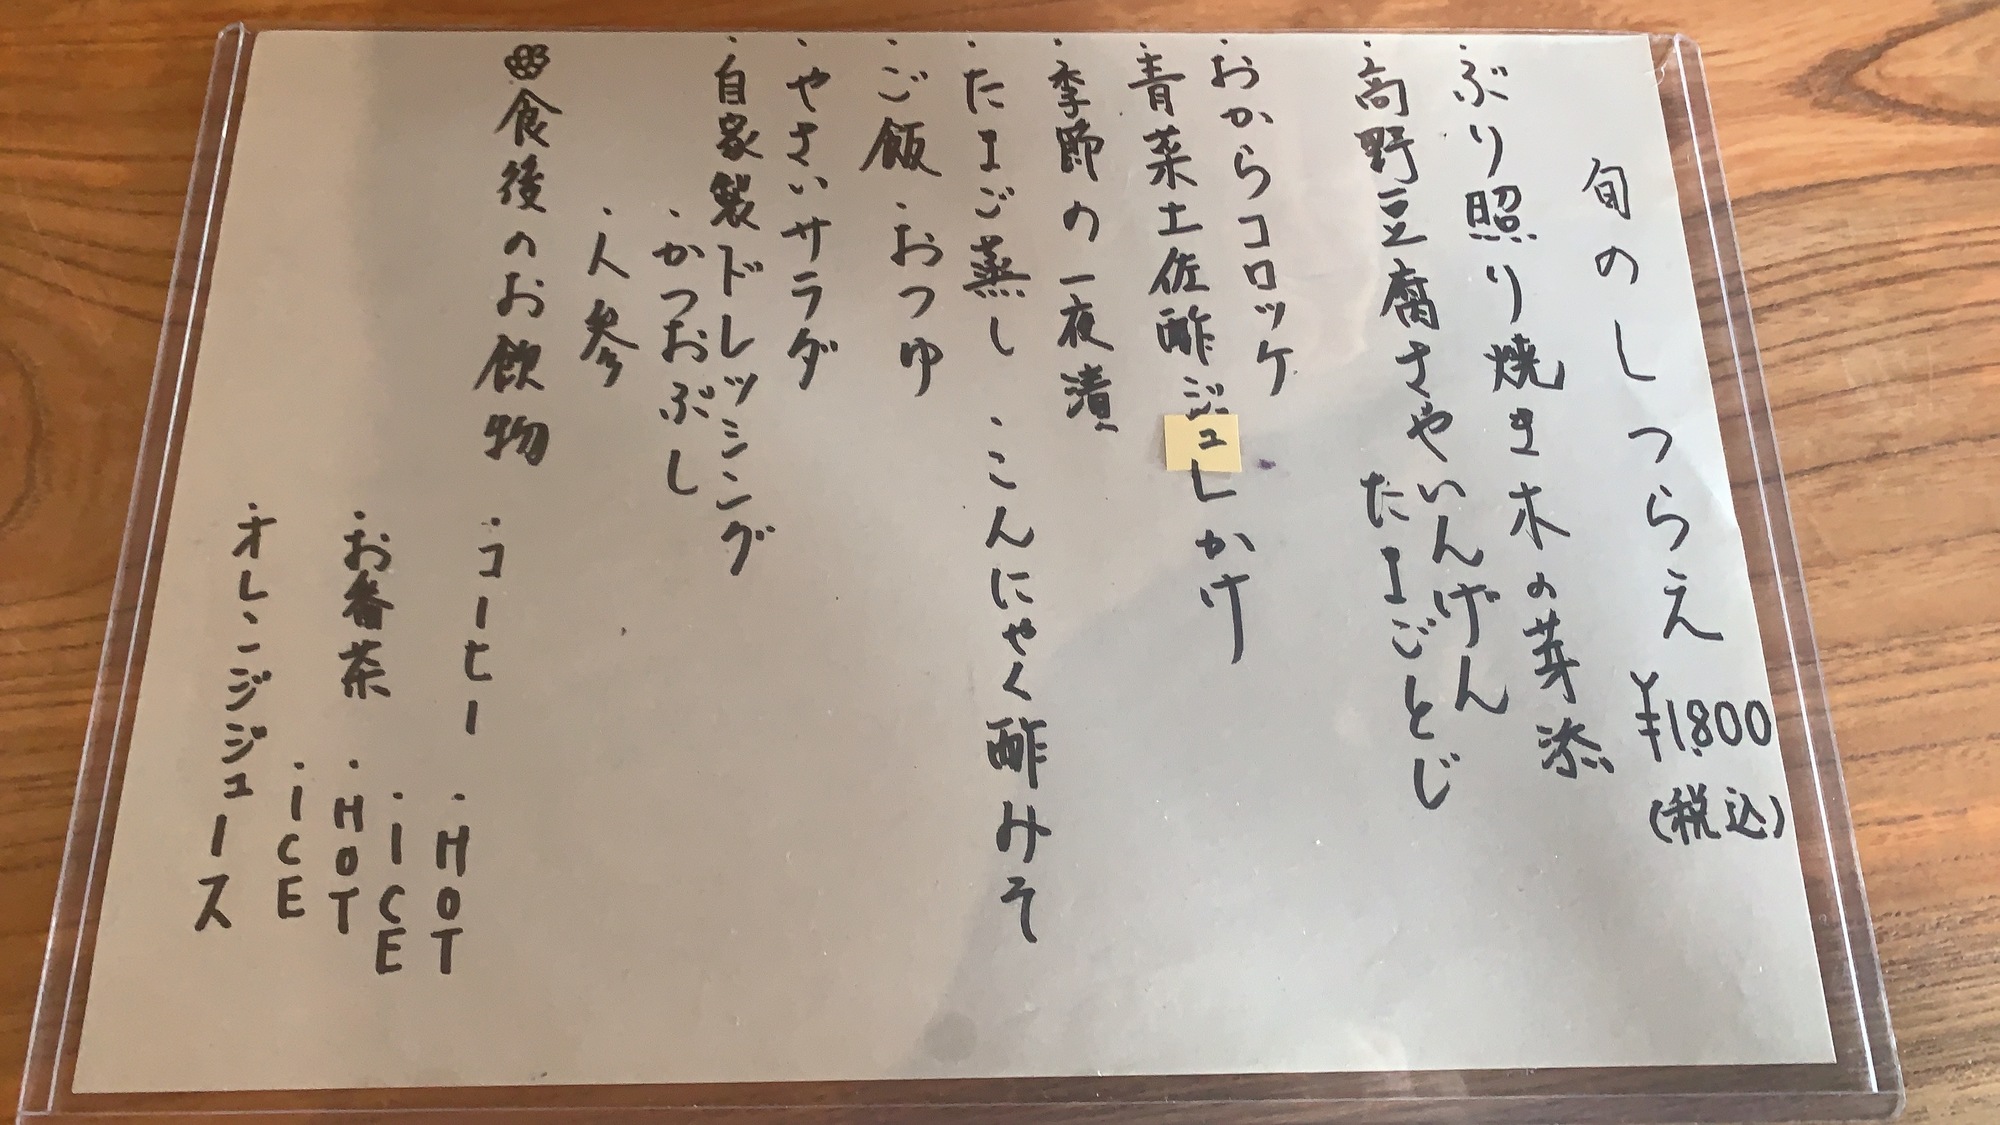 旬のしつらえ ¥1,800 (税込)
・ぶり照り焼き木の芽添
・高野豆腐さやいんげん
たまごとじ
・おからコロッケ
・青菜土佐酢ジュレかけ
・季節の一夜漬
・たまご蒸し ・こんにゃく酢みそ
・ご飯 ・おつゆ
・やさいサラダ
・自家製ドレッシング
・かつおぶし
・人参
食後のお飲物
・コーヒー ・HOT
・ICE
・お番茶 ・HOT
・ICE
・オレンジジュース